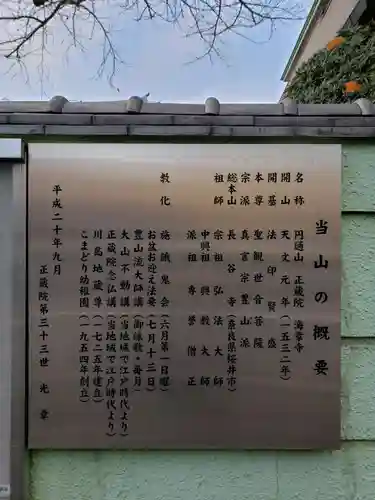 当山の概要
名称 円通山 正蔵院 海章寺
開山 天文元年(一五三二年)
開基 法印賢盛
本尊 聖観世音菩薩
宗派 真言宗豊山派
総本山 長谷寺(奈良県桜井市)
祖師 宗祖弘法大師
中興祖興教大師
派祖専誉僧正
教化 施餓鬼会(六月第一日曜)
お盆お迎え法要(七月十三日)
豊山流大師講(御詠歌・毎月)
大山不動講(当地域で江戸時代より)
正蔵院念仏講(当地域で江戸時代より)
川島地蔵尊(一七二五年建立)
こまどり幼稚園(一九五四年創立)
平成二十年九月
正蔵院第三十三世 光章